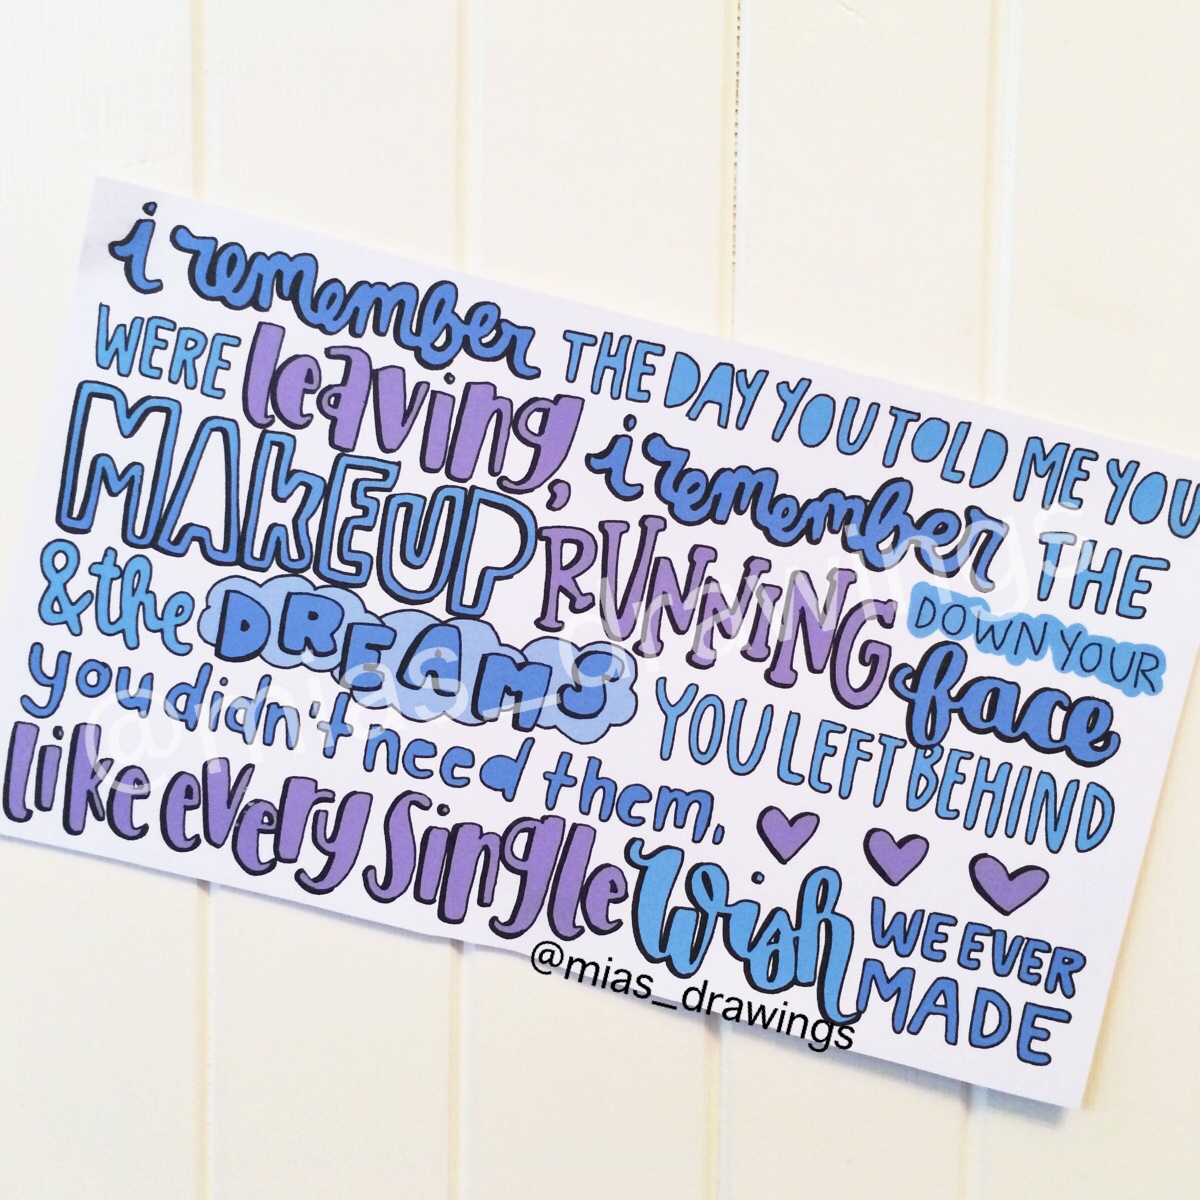 i remember THE DAY YOU TOLD ME YOU
WERE leaving, i remember THE
MAKEUP RUNNING DOWN YOUR face
&the DREAMS YOU LEFT BEHIND
you didn't need them,
like every single wish WE EVER
MADE
@mias_drawings
@mias_drawings